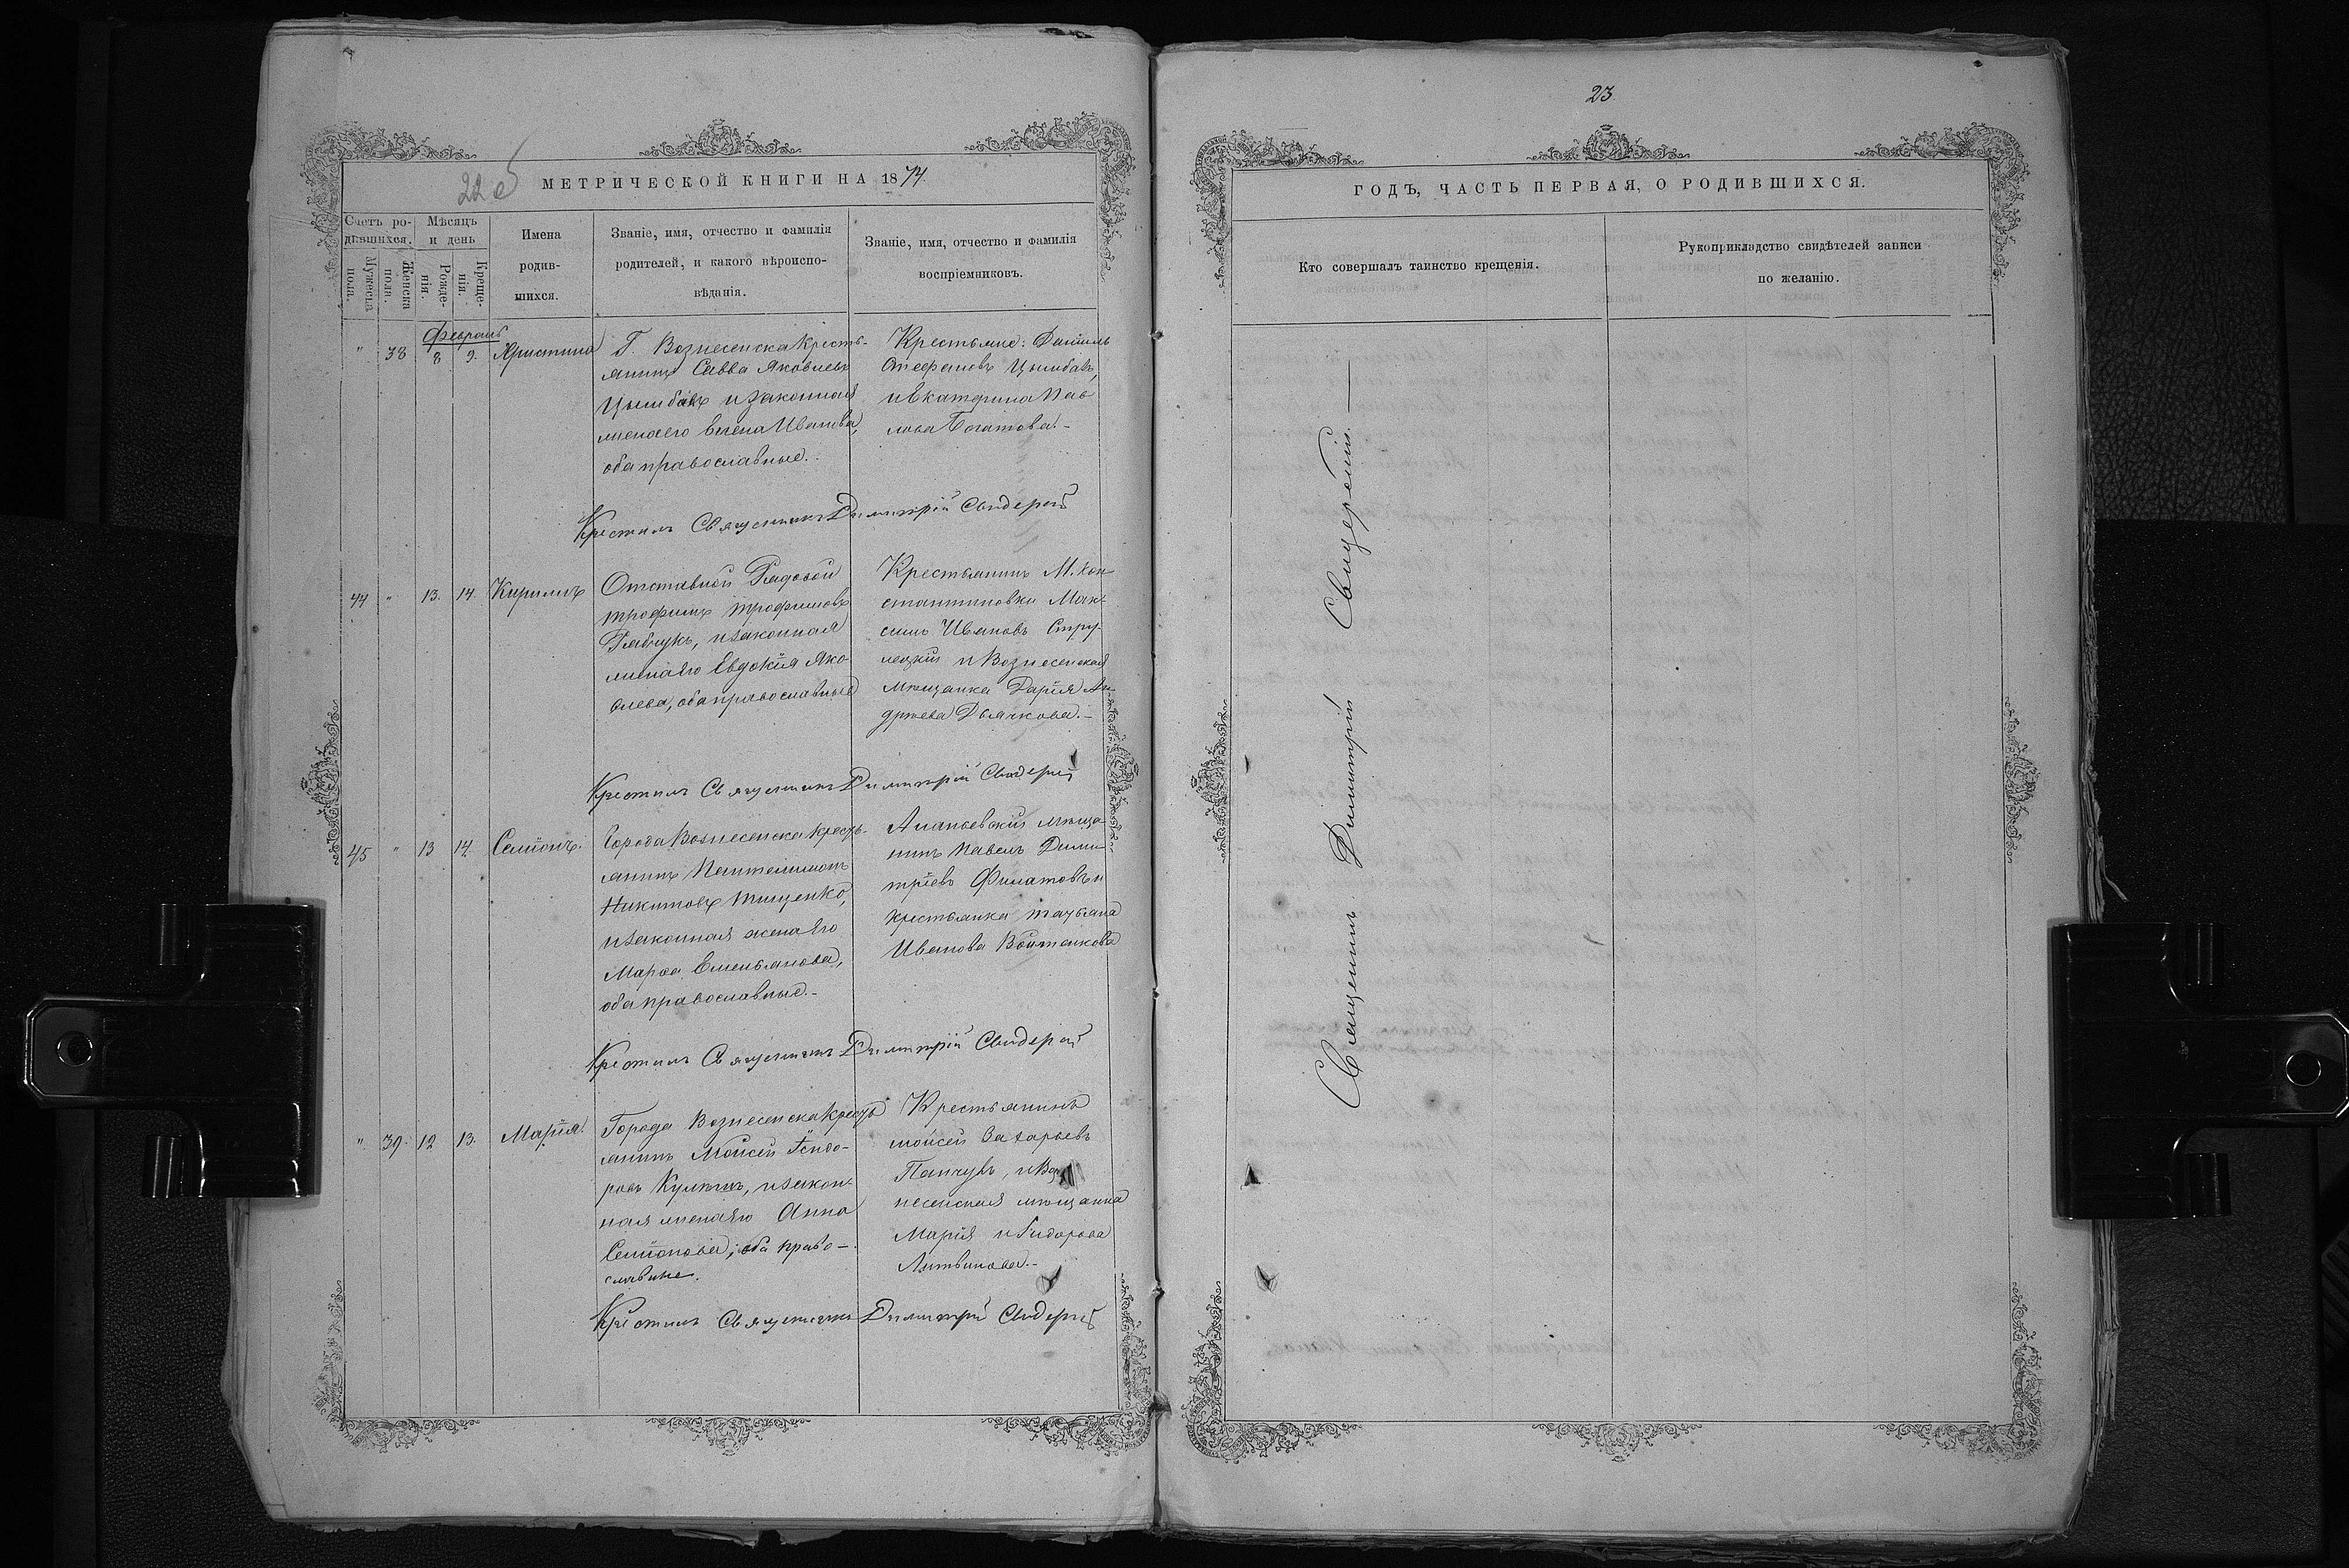 22 об
МЕТРИЧЕСКОЙ КНИГИ НА 1874
Счетъ ро-
дившихся.
Мѣсяцъ
и день
Мужеска
пола.
Женска
пола.
Рожде-
нія.
Креще-
нія.
Имена
родив-
шихся.
Званіе, имя, отчество и фамилія
родителей, и какого вѣроиспо-
вѣданія.
Званіе, имя, отчество и фамилія
воспріемниковъ.
Февраль
" 38 8 9. Христина
Г. Вознесенска Кресть-
янинъ Савва Яковлевъ
Цымбалъ и законная
жена его Елена Иванова,
оба православные.
Крестьяне: Даніилъ
Стефановъ Цымбалъ,
и Екатерина Пав
лова Богатова.-
Крестилъ Священникъ Димитрій Свидерскій
44 " 13. 14. Кириллъ
Отставной Рядовой
Трофимъ Трофимовъ
Рябчукъ, и законная
жена его Евдокія Яко
влева, оба православные
Крестьянинъ М. Кон
стантиновки Мак-
симъ Ивановъ Стру-
лецкій и Вознесенская
мѣщанка Дарія Ан-
дрѣева Дьячкова.-
Крестилъ Священникъ Димитрій Свидерскій
45 " 13 14. Семіонъ.
Города Вознесенска Кресть-
янинъ Пантелимонъ
Никитовъ Тищенко,
и законная жена его
Марѳа Емельянова,
оба православные.-
Ананьевскій мѣща
нинъ Павелъ Дими-
тріевъ Филатовъ и
крестьянка Татьяна
Иванова Войтенкова
Крестилъ Священникъ Димитрій Свидерскій
" 39. 12 13. Марія.
Города Вознесенска Кресть
янинъ Моисей Ісидо-
ровъ Кулишъ, и закон-
ная жена его Анна
Семіонова; оба право-
славные.
Крестьянинъ
Моисей Захарьевъ
Панчукъ, и Воз
несенская мѣщанка
Марія Исидорова
Литвинова.-
Крестилъ Священникъ Димитрій Свидерскій
23
ГОДЪ, ЧАСТЬ ПЕРВАЯ, О РОДИВШИХСЯ.
Кто совершалъ таинство крещенія.
Рукоприкладство свидѣтелей записи
по желанію.
Священникъ Димитрій Свидерскій.